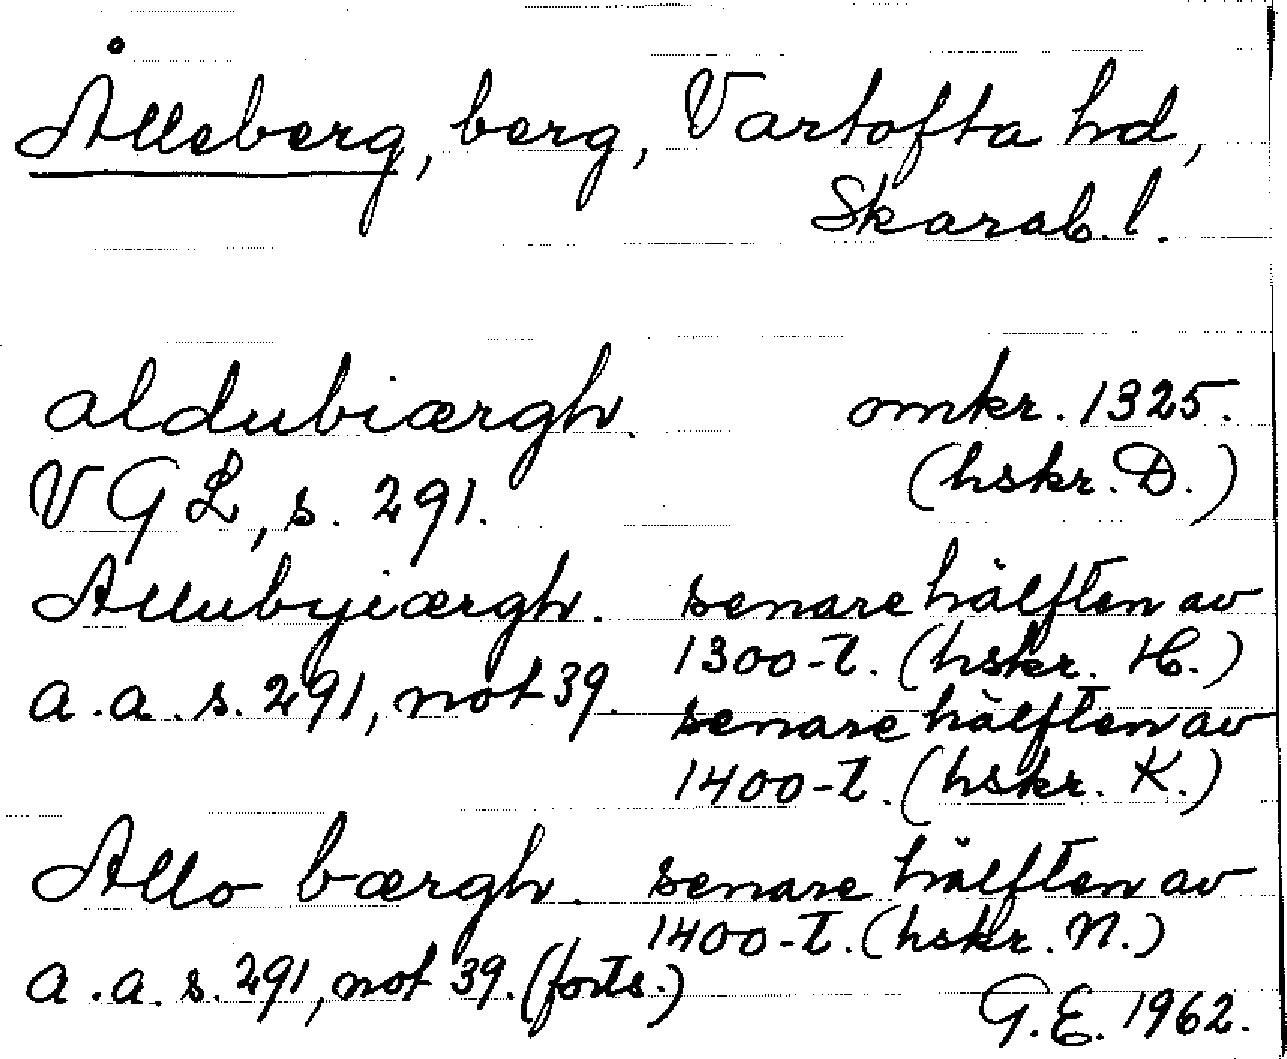 Ålleberg, berg, Vartofta hd,
Skarab. l.
aldubiærgh. omkr. 1325.
VGL, s. 291. (hskr. D.)
Allubyiærgh. senare hälften av
1300-t. (hskr. H.)
a.a. s. 291, not 39. senare hälften av
1400-t. (hskr. K.)
Allo bærgh. senare hälften av
1400-t. (hskr. N.)
a.a. s. 291, not 39. (forts.)
G.E. 1962.